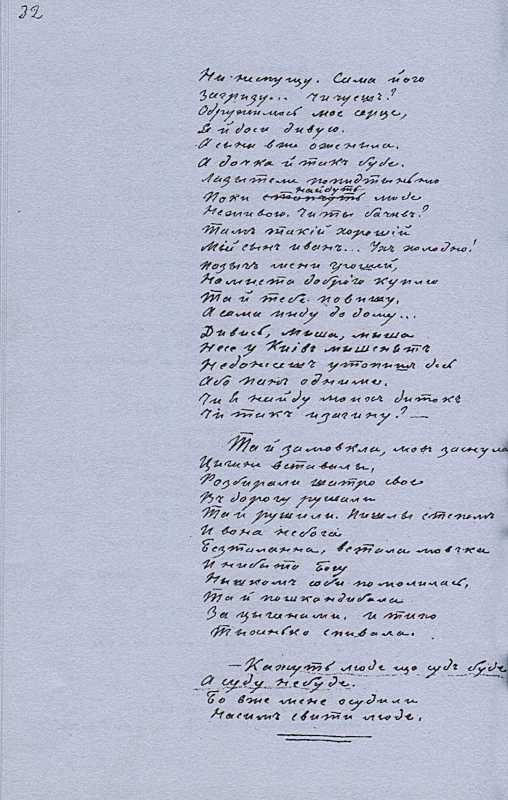 32
Ни не пущу. Сама його
Загризу... Чи чуешъ?
Одружилось мое серце,
А сына вже оженила.
А дочка й такъ буде.
Поки найдуть люде
Неживою. Чи ты бачивъ?
Тамъ такій хорошій
Мій сынъ иванъ... Ухъ холодно!
позычъ мени грошей,
Намиста доброго куплю
Та й тебе повишу,
А сама пиду до дому...
Дивись, мыша, мыша
Несе у Київъ мышенятъ
Недонесешъ утопишъ десь
Або панъ одниме.
Чи я найду моихъ дитокъ
Чи такъ и загину? —
Та й замовкла, мовъ заснула
Цигане вставалы,
Розбирали шатро свое
Въ дорогу рушали
Та й рушили. Пишлы степомъ
И вона небога
Безталанна, встала мовчки
И нибыто Богу
Нышкомъ соби помолилась,
Та й пошкандибала
За цыганами. и тихо
Тихенько спивала.
— Кажуть люде що судъ буде
А суду небуде.
Бо вже мене осудили
На симъ свити люде.